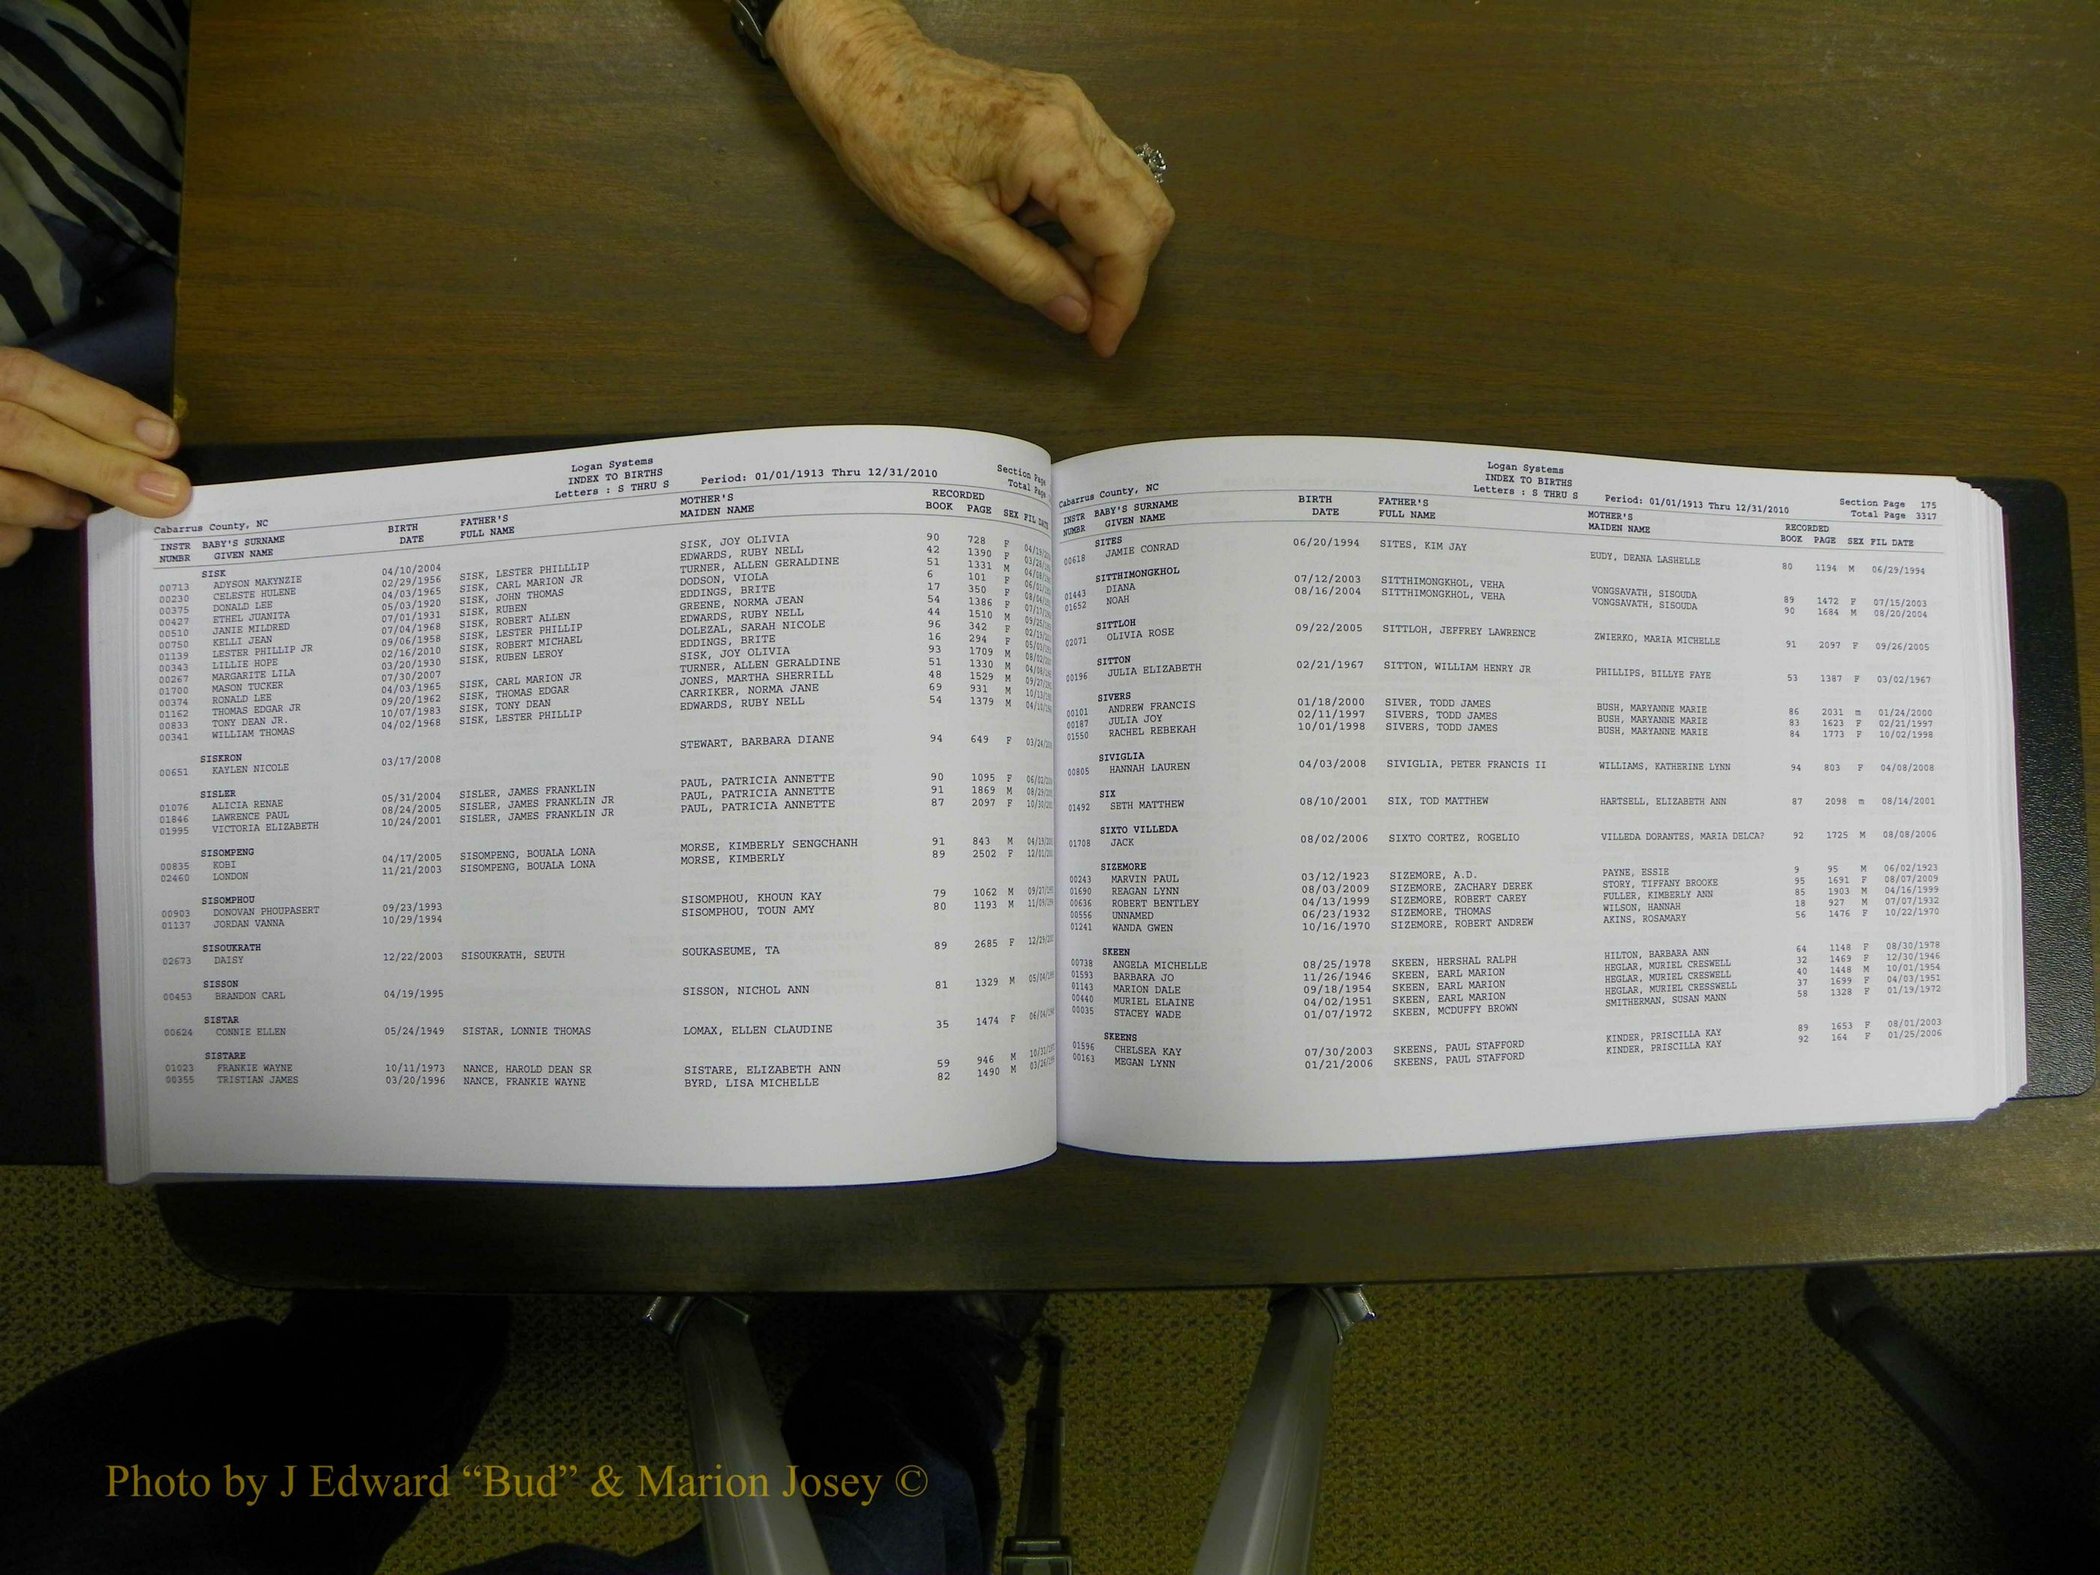 Logan Systems
INDEX TO BIRTHS
Letters : S THRU S Period: 01/01/1913 Thru 12/31/2010 Section Page
Cabarrus County, NC Total Page
INSTR BABY'S SURNAME BIRTH FATHER'S MOTHER'S RECORDED
NUMBR GIVEN NAME DATE FULL NAME MAIDEN NAME BOOK PAGE SEX FIL DATE
SISK
00713 ADYSON MAKYNZIE 04/10/2004 SISK, JOY OLIVIA 90 728 F
00230 CELESTE HULENE 02/29/1956 SISK, LESTER PHILLLIP EDWARDS, RUBY NELL 42 1390 F
00375 DONALD LEE 04/03/1965 SISK, CARL MARION JR TURNER, ALLEN GERALDINE 51 1331 M
00427 ETHEL JUANITA 05/03/1920 SISK, JOHN THOMAS DODSON, VIOLA 6 101 F
00510 JANIE MILDRED 07/01/1931 SISK, RUBEN EDDINGS, BRITE 17 350 F
00750 KELLI JEAN 07/04/1968 SISK, ROBERT ALLEN GREENE, NORMA JEAN 54 1386 F
01139 LESTER PHILLIP JR 09/06/1958 SISK, LESTER PHILLIP EDWARDS, RUBY NELL 44 1510 M
00343 LILLIE HOPE 02/16/2010 SISK, ROBERT MICHAEL DOLEZAL, SARAH NICOLE 96 342 F
00267 MARGARITE LILA 03/20/1930 SISK, RUBEN LEROY EDDINGS, BRITE 16 294 F
01700 MASON TUCKER 07/30/2007 SISK, JOY OLIVIA 93 1709 M
00374 RONALD LEE 04/03/1965 SISK, CARL MARION JR TURNER, ALLEN GERALDINE 51 1330 M
01162 THOMAS EDGAR JR 09/20/1962 SISK, THOMAS EDGAR JONES, MARTHA SHERRILL 48 1529 M
00833 TONY DEAN JR. 10/07/1983 SISK, TONY DEAN CARRIKER, NORMA JANE 69 931 M
00341 WILLIAM THOMAS 04/02/1968 SISK, LESTER PHILLIP EDWARDS, RUBY NELL 54 1379 M
SISKRON
00651 KAYLEN NICOLE 03/17/2008 STEWART, BARBARA DIANE 94 649 F
SISLER
01076 ALICIA RENAE 05/31/2004 SISLER, JAMES FRANKLIN PAUL, PATRICIA ANNETTE 90 1095 F
01846 LAWRENCE PAUL 08/24/2005 SISLER, JAMES FRANKLIN JR PAUL, PATRICIA ANNETTE 91 1869 M
01995 VICTORIA ELIZABETH 10/24/2001 SISLER, JAMES FRANKLIN JR PAUL, PATRICIA ANNETTE 87 2097 F
SISOMPENG
00835 KOBI 04/17/2005 SISOMPENG, BOUALA LONA MORSE, KIMBERLY SENGCHANH 91 843 M
02460 LONDON 11/21/2003 SISOMPENG, BOUALA LONA MORSE, KIMBERLY 89 2502 F
SISOMPHOU
00903 DONOVAN PHOUPASERT 09/23/1993 SISOMPHOU, KHOUN KAY 79 1062 M
01137 JORDAN VANNA 10/29/1994 SISOMPHOU, TOUN AMY 80 1193 M
SISOUKRATH
02673 DAISY 12/22/2003 SISOUKRATH, SEUTH SOUKASEUME, TA 89 2685 F
SISSON
00453 BRANDON CARL 04/19/1995 SISSON, NICHOL ANN 81 1329 M
SISTAR
00624 CONNIE ELLEN 05/24/1949 SISTAR, LONNIE THOMAS LOMAX, ELLEN CLAUDINE 35 1474 F
SISTARE
01023 FRANKIE WAYNE 10/11/1973 NANCE, HAROLD DEAN SR SISTARE, ELIZABETH ANN 59 946 M
00355 TRISTIAN JAMES 03/20/1996 NANCE, FRANKIE WAYNE BYRD, LISA MICHELLE 82 1490 M
Logan Systems
INDEX TO BIRTHS
Letters : S THRU S Period: 01/01/1913 Thru 12/31/2010 Section Page 175
Cabarrus County, NC Total Page 3317
INSTR BABY'S SURNAME BIRTH FATHER'S MOTHER'S RECORDED
NUMBR GIVEN NAME DATE FULL NAME MAIDEN NAME BOOK PAGE SEX FIL DATE
SITES
00618 JAMIE CONRAD 06/20/1994 SITES, KIM JAY EUDY, DEANA LASHELLE 80 1194 M 06/29/1994
SITTHIMONGKHOL
01443 DIANA 07/12/2003 SITTHIMONGKHOL, VEHA VONGSAVATH, SISOUDA 89 1472 F 07/15/2003
01652 NOAH 08/16/2004 SITTHIMONGKHOL, VEHA VONGSAVATH, SISOUDA 90 1684 M 08/20/2004
SITTLOH
02071 OLIVIA ROSE 09/22/2005 SITTLOH, JEFFREY LAWRENCE ZWIERKO, MARIA MICHELLE 91 2097 F 09/26/2005
SITTON
00196 JULIA ELIZABETH 02/21/1967 SITTON, WILLIAM HENRY JR PHILLIPS, BILLYE FAYE 53 1387 F 03/02/1967
SIVERS
00101 ANDREW FRANCIS 01/18/2000 SIVER, TODD JAMES BUSH, MARYANNE MARIE 86 2031 m 01/24/2000
00187 JULIA JOY 02/11/1997 SIVERS, TODD JAMES BUSH, MARYANNE MARIE 83 1623 F 02/21/1997
01550 RACHEL REBEKAH 10/01/1998 SIVERS, TODD JAMES BUSH, MARYANNE MARIE 84 1773 F 10/02/1998
SIVIGLIA
00805 HANNAH LAUREN 04/03/2008 SIVIGLIA, PETER FRANCIS II WILLIAMS, KATHERINE LYNN 94 803 F 04/08/2008
SIX
01492 SETH MATTHEW 08/10/2001 SIX, TOD MATTHEW HARTSELL, ELIZABETH ANN 87 2098 m 08/14/2001
SIXTO VILLEDA
01708 JACK 08/02/2006 SIXTO CORTEZ, ROGELIO VILLEDA DORANTES, MARIA DELCA? 92 1725 M 08/08/2006
SIZEMORE
00243 MARVIN PAUL 03/12/1923 SIZEMORE, A.D. PAYNE, ESSIE 9 95 M 06/02/1923
01690 REAGAN LYNN 08/03/2009 SIZEMORE, ZACHARY DEREK STORY, TIFFANY BROOKE 95 1691 F 08/07/2009
00636 ROBERT BENTLEY 04/13/1999 SIZEMORE, ROBERT CAREY FULLER, KIMBERLY ANN 85 1903 M 04/16/1999
00556 UNNAMED 06/23/1932 SIZEMORE, THOMAS WILSON, HANNAH 18 927 M 07/07/1932
01241 WANDA GWEN 10/16/1970 SIZEMORE, ROBERT ANDREW AKINS, ROSAMARY 56 1476 F 10/22/1970
SKEEN
00738 ANGELA MICHELLE 08/25/1978 SKEEN, HERSHAL RALPH HILTON, BARBARA ANN 64 1148 F 08/30/1978
01593 BARBARA JO 11/26/1946 SKEEN, EARL MARION HEGLAR, MURIEL CRESWELL 32 1469 F 12/30/1946
01143 MARION DALE 09/18/1954 SKEEN, EARL MARION HEGLAR, MURIEL CRESWELL 40 1448 M 10/01/1954
00440 MURIEL ELAINE 04/02/1951 SKEEN, EARL MARION HEGLAR, MURIEL CRESSWELL 37 1699 F 04/03/1951
00035 STACEY WADE 01/07/1972 SKEEN, MCDUFFY BROWN SMITHERMAN, SUSAN MANN 58 1328 F 01/19/1972
SKEENS
01596 CHELSEA KAY 07/30/2003 SKEENS, PAUL STAFFORD KINDER, PRISCILLA KAY 89 1653 F 08/01/2003
00163 MEGAN LYNN 01/21/2006 SKEENS, PAUL STAFFORD KINDER, PRISCILLA KAY 92 164 F 01/25/2006
Photo by J Edward “Bud” & Marion Josey ©